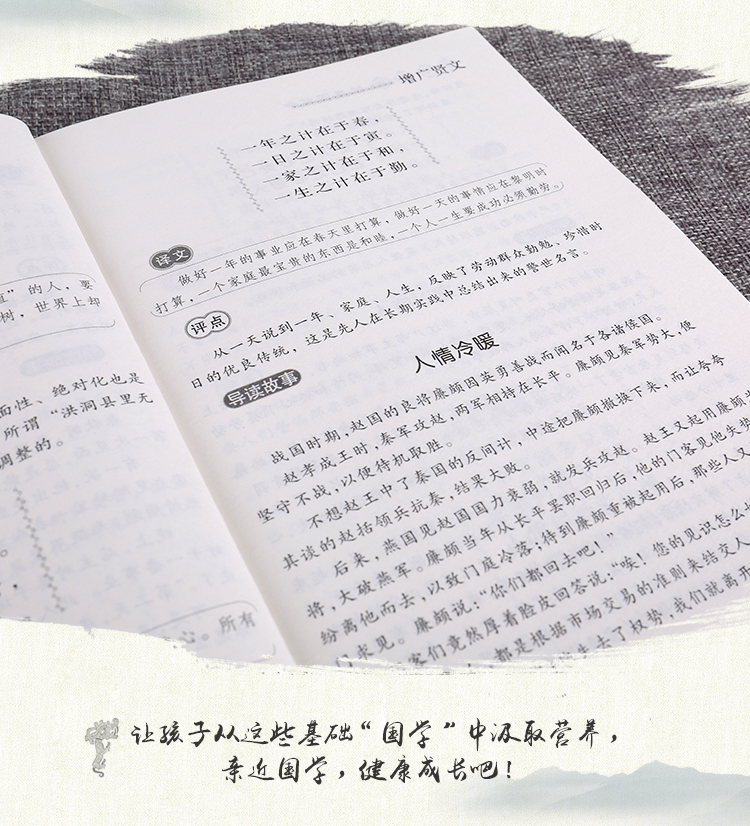 ”的人，要
树，世界上却
面性、绝对化也是
所谓“洪洞县里无
调整的。
心。所有
增广贤文
一年之计在于春，
一日之计在于寅。
一家之计在于和，
一生之计在于勤。
译文
做好一年的事业应在春天里打算，做好一天的事情应在黎明时
打算，一个家庭最宝贵的东西是和睦，一个人一生要成功必须勤劳。
评点
从一天说到一年、家庭、人生，反映了劳动群众勤勉、珍惜时
日的优良传统，这是先人在长期实践中总结出来的警世名言。
导读故事
人情冷暖
战国时期，赵国的良将廉颇因英勇善战而闻名于各诸侯国。
赵孝成王时，秦军攻赵，两军相持在长平。廉颇见秦军势大，便
坚守不战，以便待机取胜。
不想赵王中了秦国的反间计，中途把廉颇撤换下来，而让夸夸
其谈的赵括领兵抗秦，结果大败。
后来，燕国见赵国国力衰弱，就发兵攻赵。赵王又起用廉颇为
将，大破燕军。廉颇当年从长平罢职回归后，他的门客见他失势
纷离他而去，以致门庭冷落；待到廉颇重被起用后，那些人又
门求见。廉颇说：“你们都回去吧！”
客们竟然厚着脸皮回答说：“唉！您的见识怎么
都是根据市场交易的准则来结交人
失去了权势，我们就离开
让孩子从这些基础“国学”中汲取营养，
亲近国学，健康成长吧！